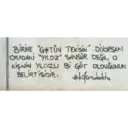 BİRİNE "G*TÜN TEKİSİN" DİYORSAM
ORADAKİ "YILDIZ" SANSÜR DEĞİL, O
KİŞİNİN YILDIZLI Bİ GÖT OLDUĞUNUN
BELİRTİSİDİR.